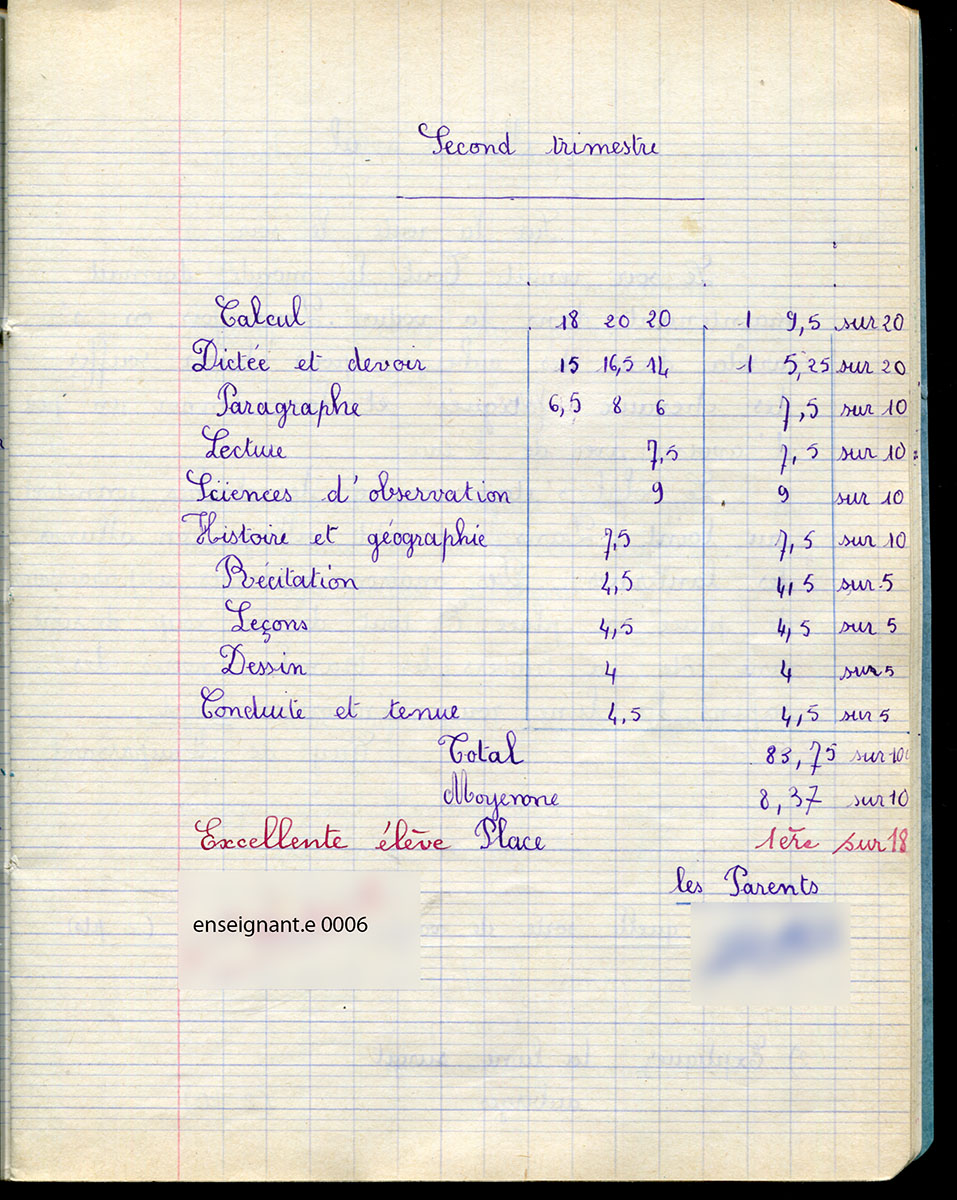 Second trimestre
Calcul 18 20 20 1 9,5 sur 20
Dictée et devoir 15 16,5 14 1 5,25 sur 20
Paragraphe 6,5 8 6 7,5 sur 10
Lecture 7,5 7,5 sur 10
Sciences d'observation 9 9 sur 10
Histoire et géographie 7,5 7,5 sur 10
Récitation 4,5 4,5 sur 5
Leçons 4,5 4,5 sur 5
Dessin 4 4 sur 5
Conduite et tenue 4,5 4,5 sur 5
Total 83,75 sur 10
Moyenne 8,37 sur 10
Excellente élève Place 1ère sur 18
les Parents
enseignant.e 0006